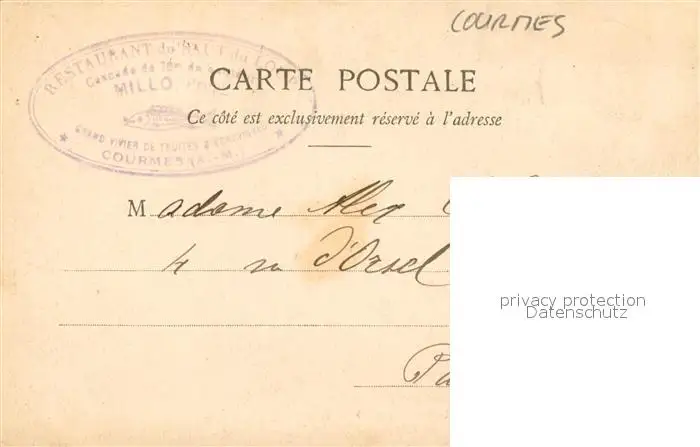 COURMES
RESTAURANT du SAUT du LOUP
Cascade de
MILLO
GRAND VIVIER DE TRUITES &
COURMES (A.-M.)
CARTE POSTALE
Ce côté est exclusivement réservé à l'adresse
Madame Alex
4 d'Orsel
privacy protection
Datenschutz